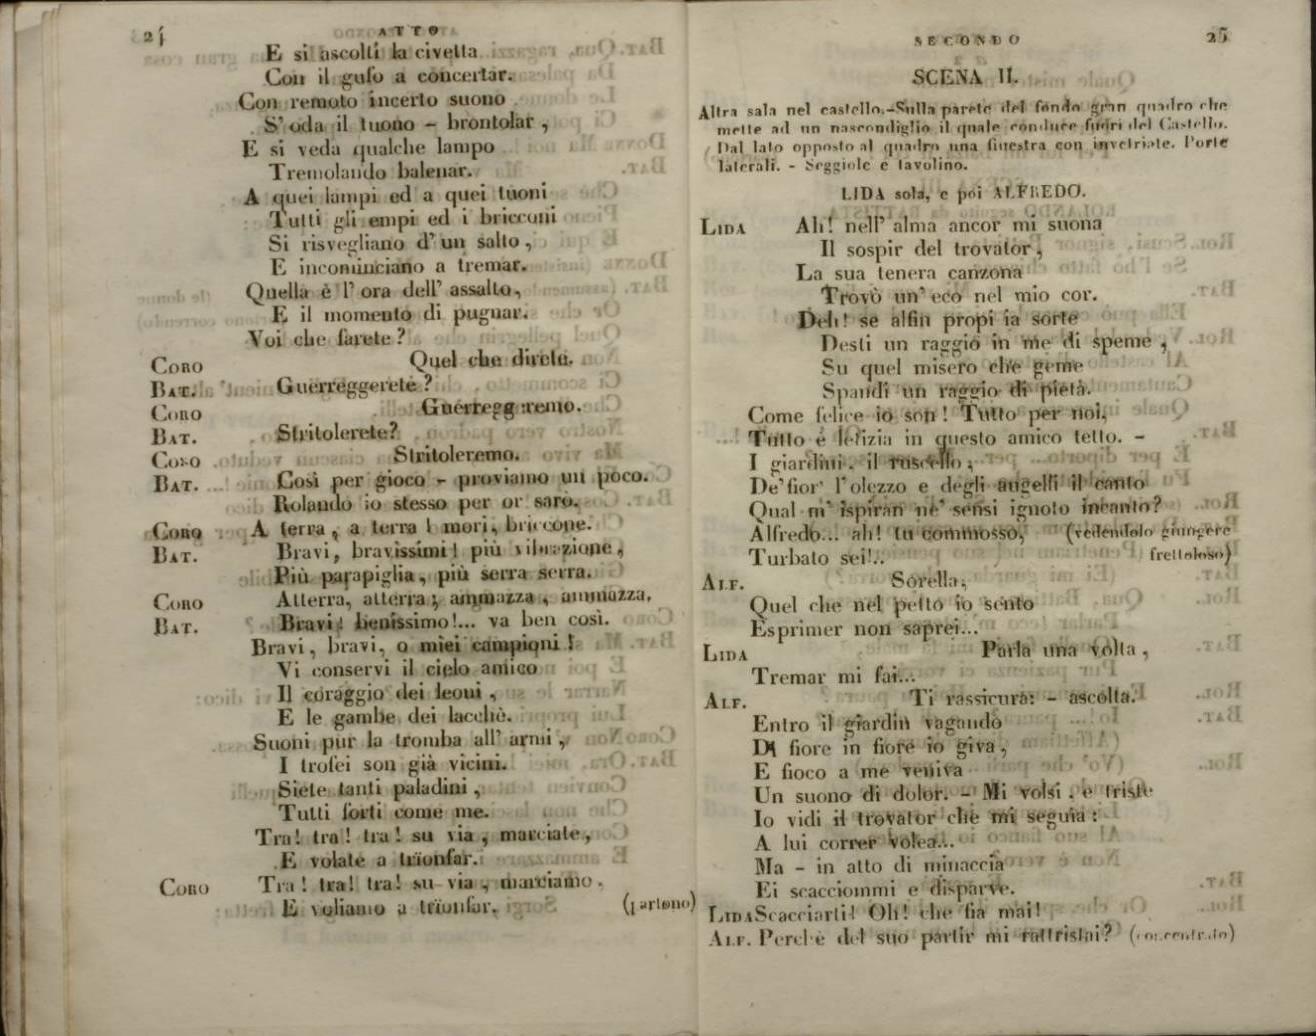 24
ATTO
E si ascolti la civetta
Con il gufo a concertar.
Con remoto incerto suono
S' oda il tuono - brontolar ,
E si veda qualche lampo
Tremolando balenar.
A quei lampi ed a quei tuoni
Tutti gli empi ed i bricconi
Si risvegliano d' un salto ,
E incominciano a tremar.
Quella è l' ora dell' assalto,
E il momento di pugnar.
Voi che farete ?
CORO Quel che direte.
BAT. Guerreggerete ?
CORO Guerreggeremo.
BAT. Stritolerete?
CORO Stritoleremo.
BAT. Così per gioco - proviamo un poco.
Rolando io stesso per or sarò.
CORO A terra , a terra ! mori, briccone.
BAT. Bravi, bravissimi! più vibrazione ,
Più parapiglia, più serra serra.
CORO Atterra, atterra ; ammazza , ammazza.
BAT. Bravi! benissimo!... va ben così.
Bravi, bravi, o miei campioni !
Vi conservi il cielo amico
Il coraggio dei leoni ,
E le gambe dei lacchè.
Suoni pur la tromba all' armi ,
I trofei son già vicini.
Siete tanti paladini ,
Tutti forti come me.
Tra! tra! tra! su via , marciate,
E volate a trïonfar.
CORO Tra! tra! tra! su via , marciamo.
E voliamo a trïonfar. (partono)
SECONDO
25
SCENA II.
Altra sala nel castello.-Sulla parete del fondo gran quadro che
mette ad un nascondiglio il quale conduce fuori del Castello.
Dal lato opposto al quadro una finestra con invetriate. Porte
laterali. - Seggiole e tavolino.
LIDA sola, e poi ALFREDO.
LIDA Ah! nell' alma ancor mi suona
Il sospir del trovator ,
La sua tenera canzona
Trovò un' eco nel mio cor.
Deh! se alfin propizia sorte
Desti un raggio in me di speme ,
Su quel misero che geme
Spandi un raggio di pietà.
Come felice io son ! Tutto per noi,
Tutto è letizia in questo amico tetto. -
I giardini, il ruscello ,
De' fior' l' olezzo e degli augelli il canto
Qual m' ispiran ne' sensi ignoto incanto?
Alfredo... ah! tu commosso, (vedendolo giungere
Turbato sei!.. frettoloso)
ALF. Sorella,
Quel che nel petto io sento
Esprimer non saprei...
LIDA Parla una volta ,
Tremar mi fai...
ALF. Ti rassicura: - ascolta.
Entro il giardin vagando
Di fiore in fiore io giva ,
E fioco a me veniva
Un suono di dolor. - Mi volsi , e triste
Io vidi il trovator che mi seguia :
A lui correr volea...
Ma - in atto di minaccia
Ei scacciommi e disparve.
LIDA Scacciarti! Oh! che fia mai!
ALF. Perchè del suo partir mi rattristai? (concentrato)